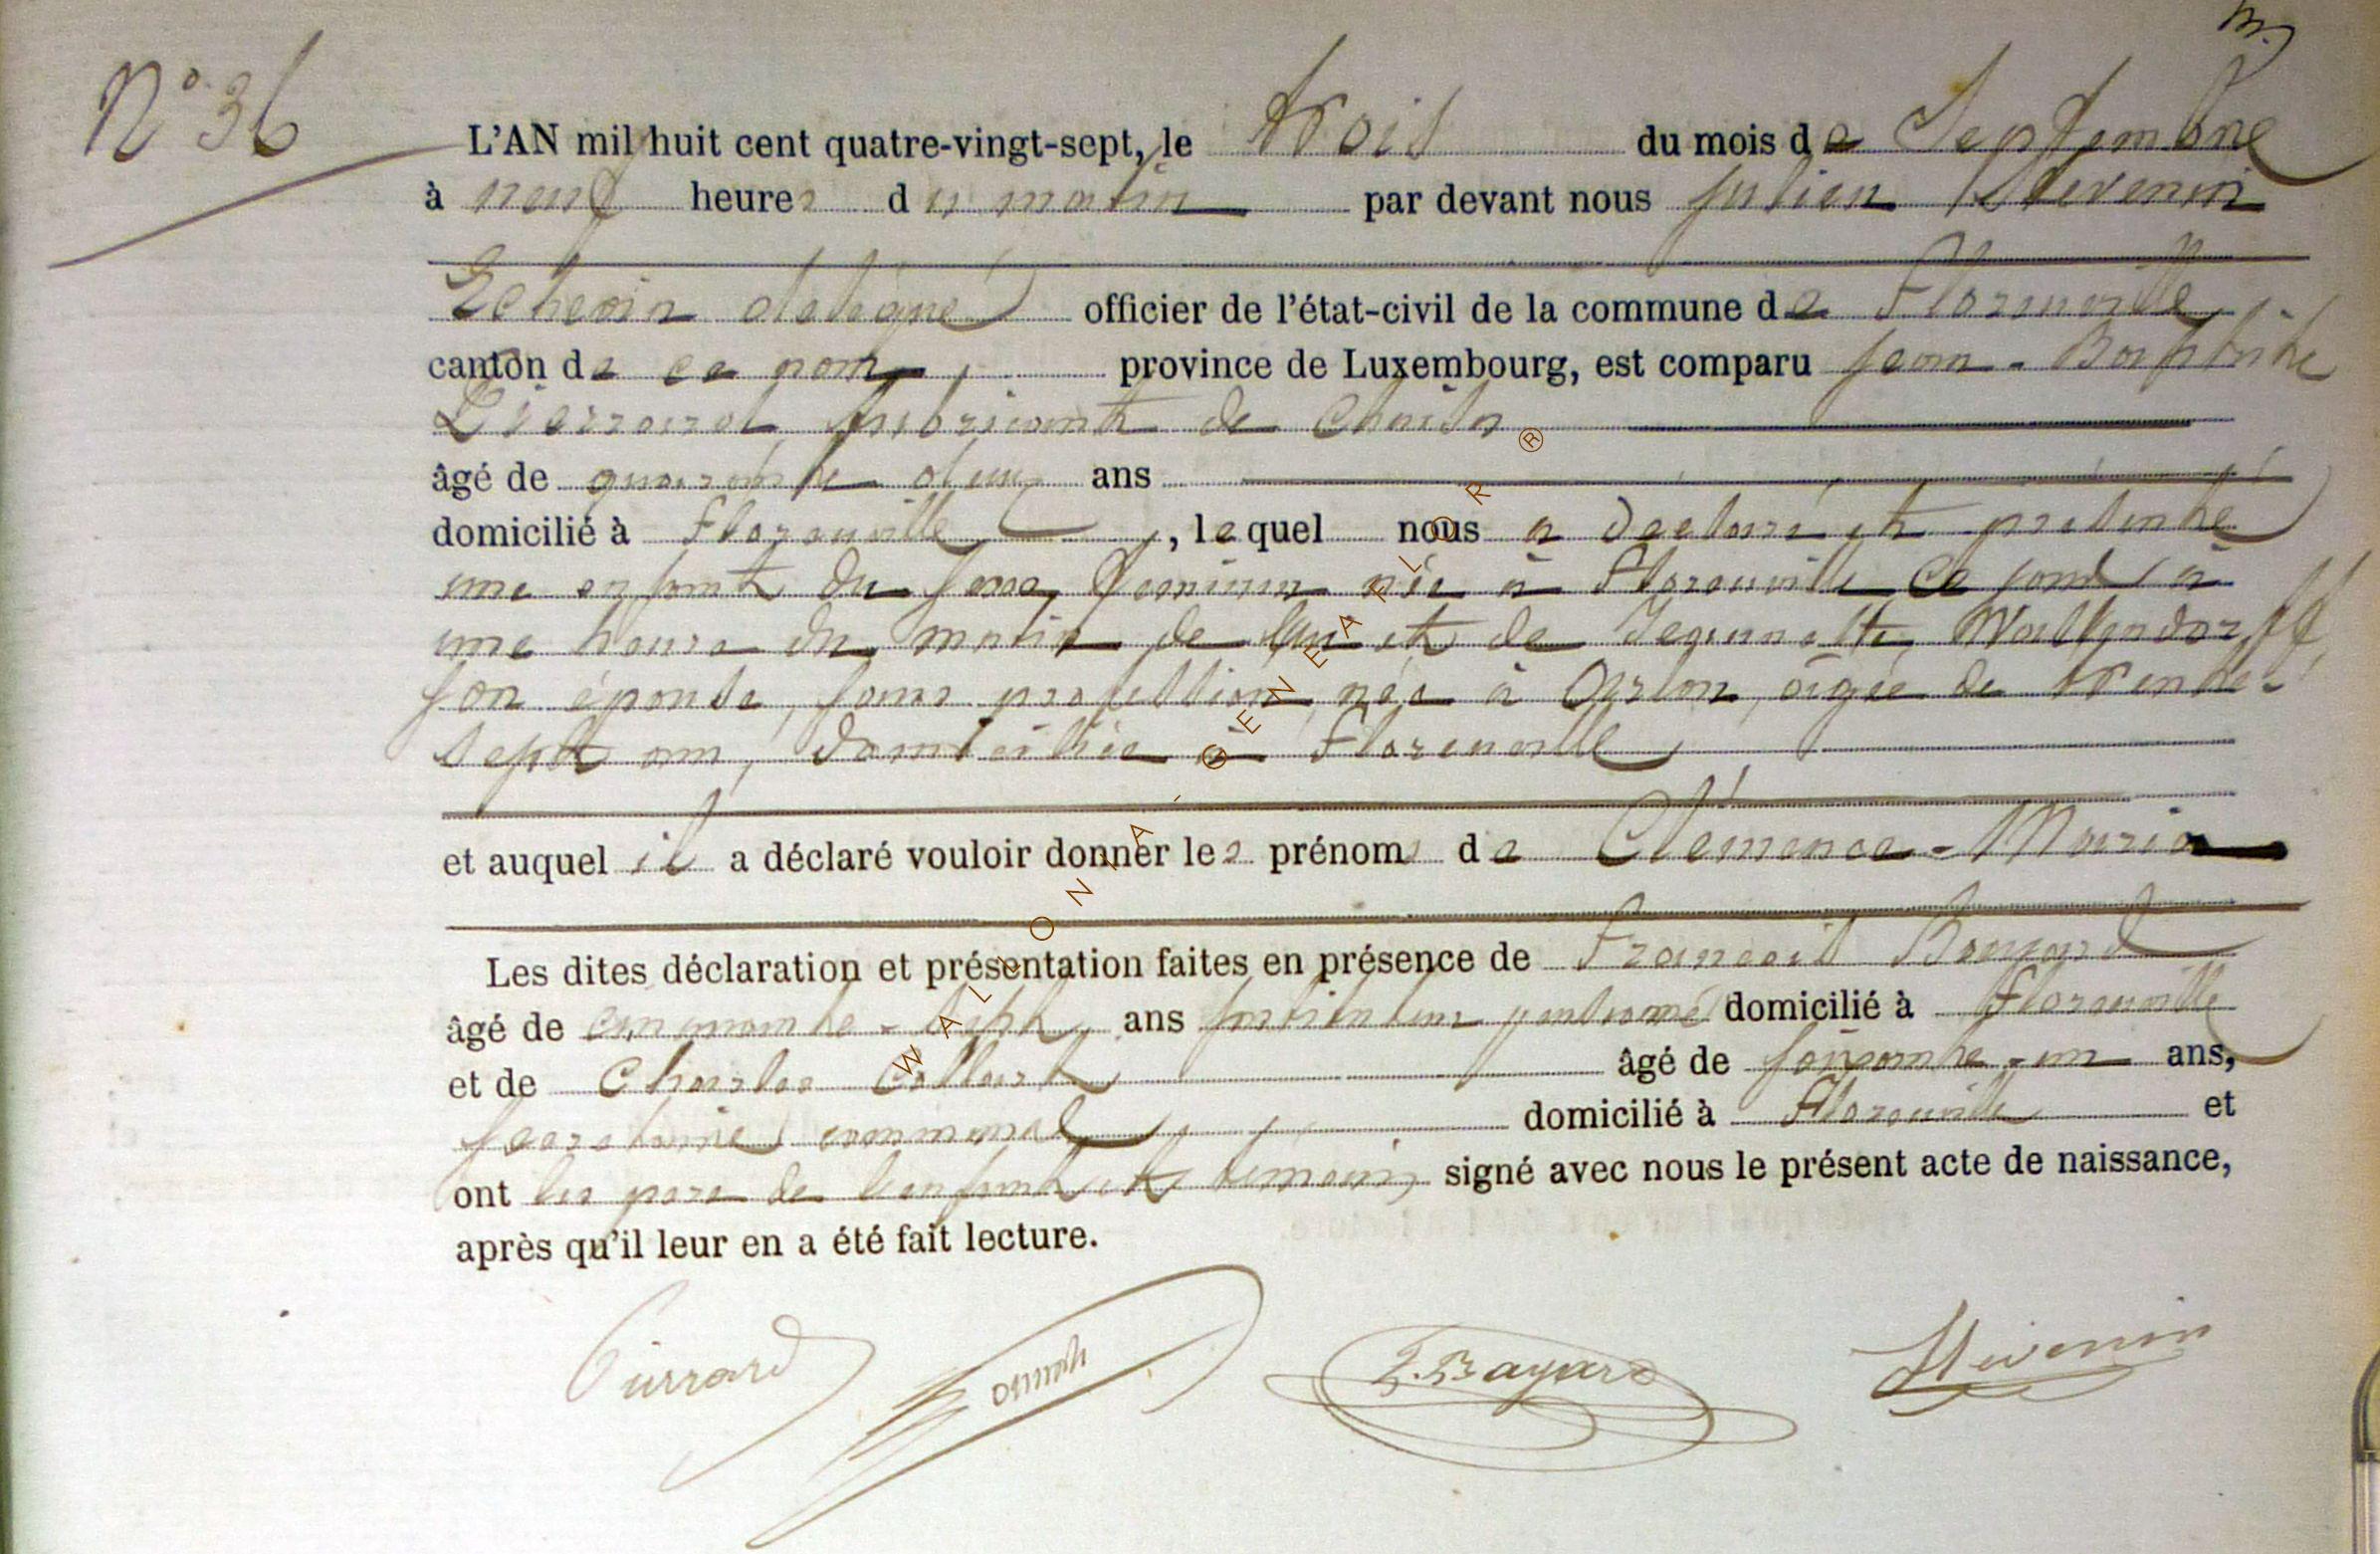 N° 36
L'AN mil huit cent quatre-vingt-sept, le trois du mois de Septembre
à neuf heures du matin par devant nous Julien Thevenin
Echevin délégué officier de l'état-civil de la commune de Florenville
canton de ce nom, province de Luxembourg, est comparu Jean-Baptiste
Pierrard, fabricant de chaises
âgé de quarante deux ans
domicilié à Florenville, lequel nous a déclaré et présenté
une enfant du sexe féminin née à Florenville ce jourd'
une heure du matin de lui et de Jeannette Waltzendorff
son épouse, sans profession, née à Arlon, âgée de trente-
sept ans, domiciliée à Florenville
et auquel il a déclaré vouloir donner les prénoms de Clémence-Maria
Les dites déclaration et présentation faites en présence de François Bayard
âgé de cinquante-sept ans instituteur pensionné domicilié à Florenville
et de Charles Collart âgé de soixante-un ans,
secrétaire communal domicilié à Florenville et
ont les père de l'enfant et témoins signé avec nous le présent acte de naissance,
après qu'il leur en a été fait lecture.
Pierrard F. Bayard Thévenin
WALLONIA - GENEAFLOR ®